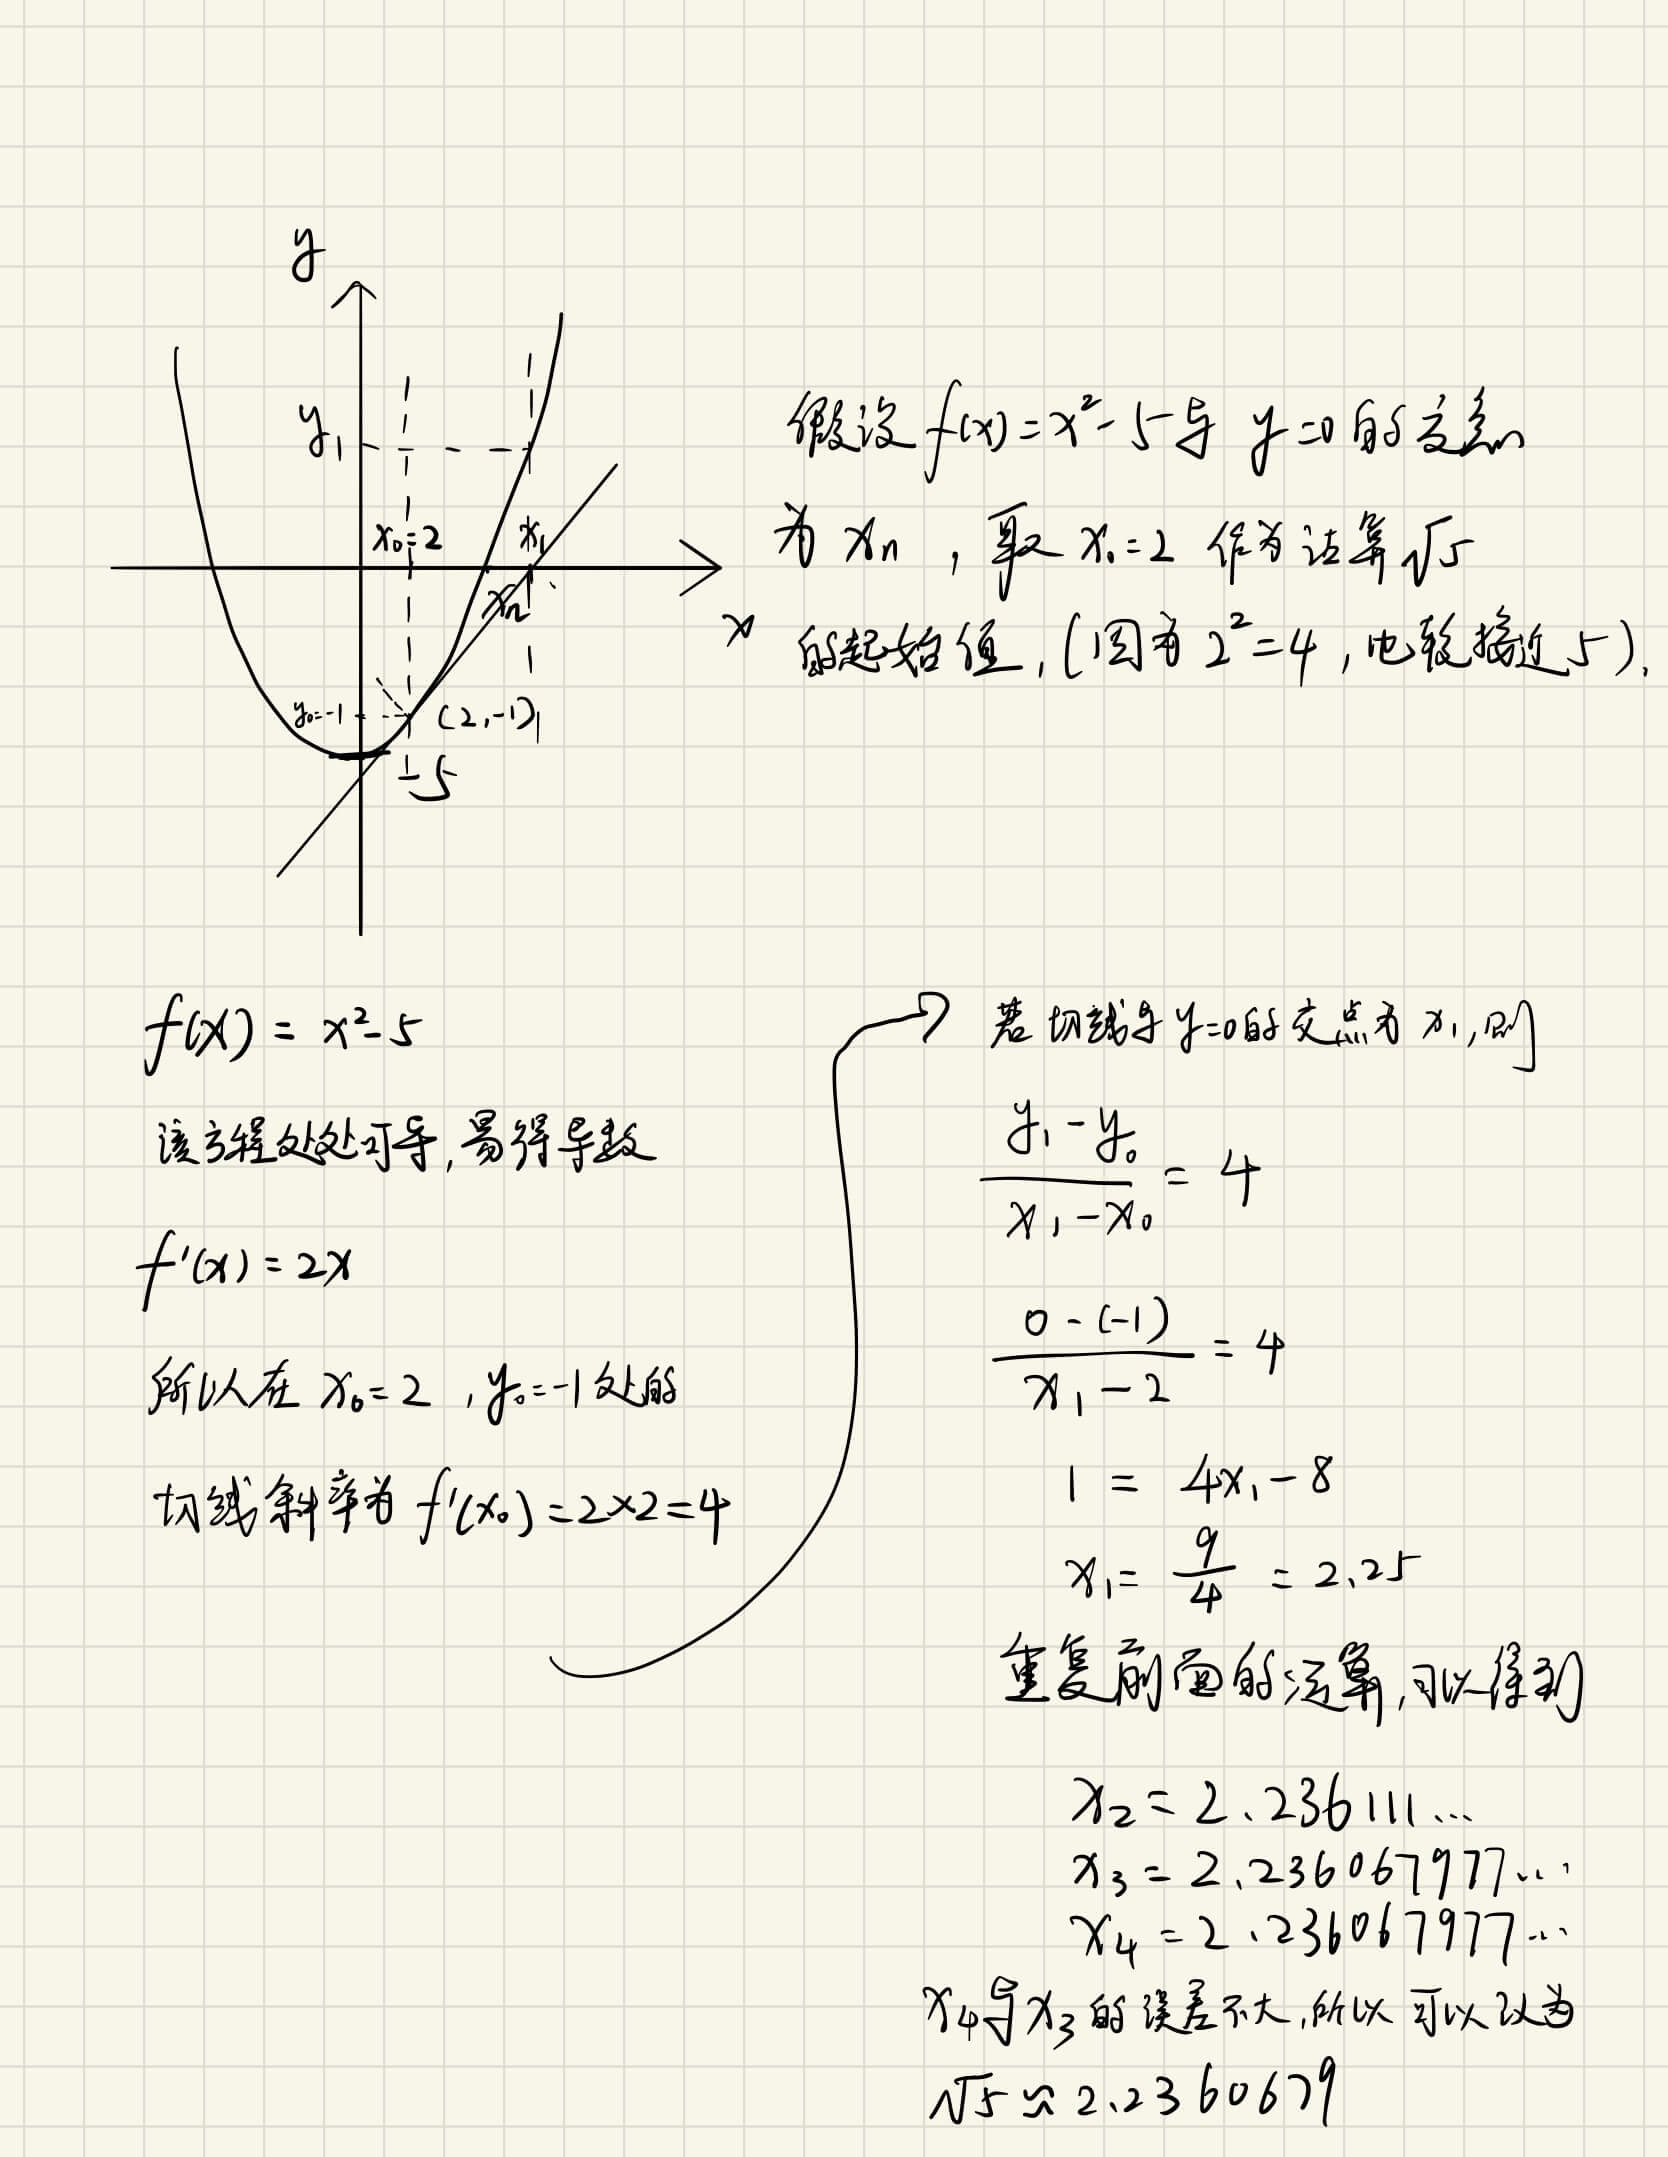 y
y₁
x₀=2
x₁
xₙ
x
y₀=-1
(2,-1)
-5
假设 f(x)=x²-5与 y=0的交点
为 xₙ ,取 x₀=2 作为估算√5
的起始值,(因为 2²=4,比较接近5).
f(x) = x²-5
该方程处处可导,易得导数
f'(x)=2x
所以在 x₀=2 ,y₀=-1处的
切线斜率为 f'(x₀)=2×2=4
若切线与y=0的交点为 x₁,则
(y₁-y₀)/(x₁-x₀) = 4
(0-(-1))/(x₁-2) = 4
1 = 4x₁-8
x₁= 9/4 = 2.25
重复前面的运算,可以得到
x₂=2.236111...
x₃=2.236067977...
x₄=2.236067977...
x₄与x₃的误差不大,所以可以认为
√5≈2.2360679